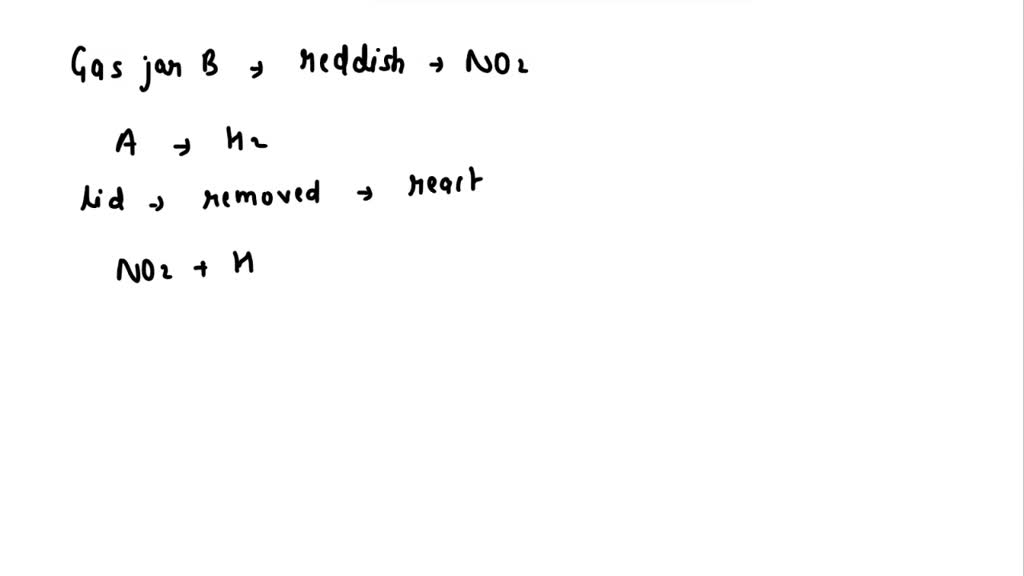 Gas jar B → reddish → NO2
A → H2
lid → removed → react
NO2 + H